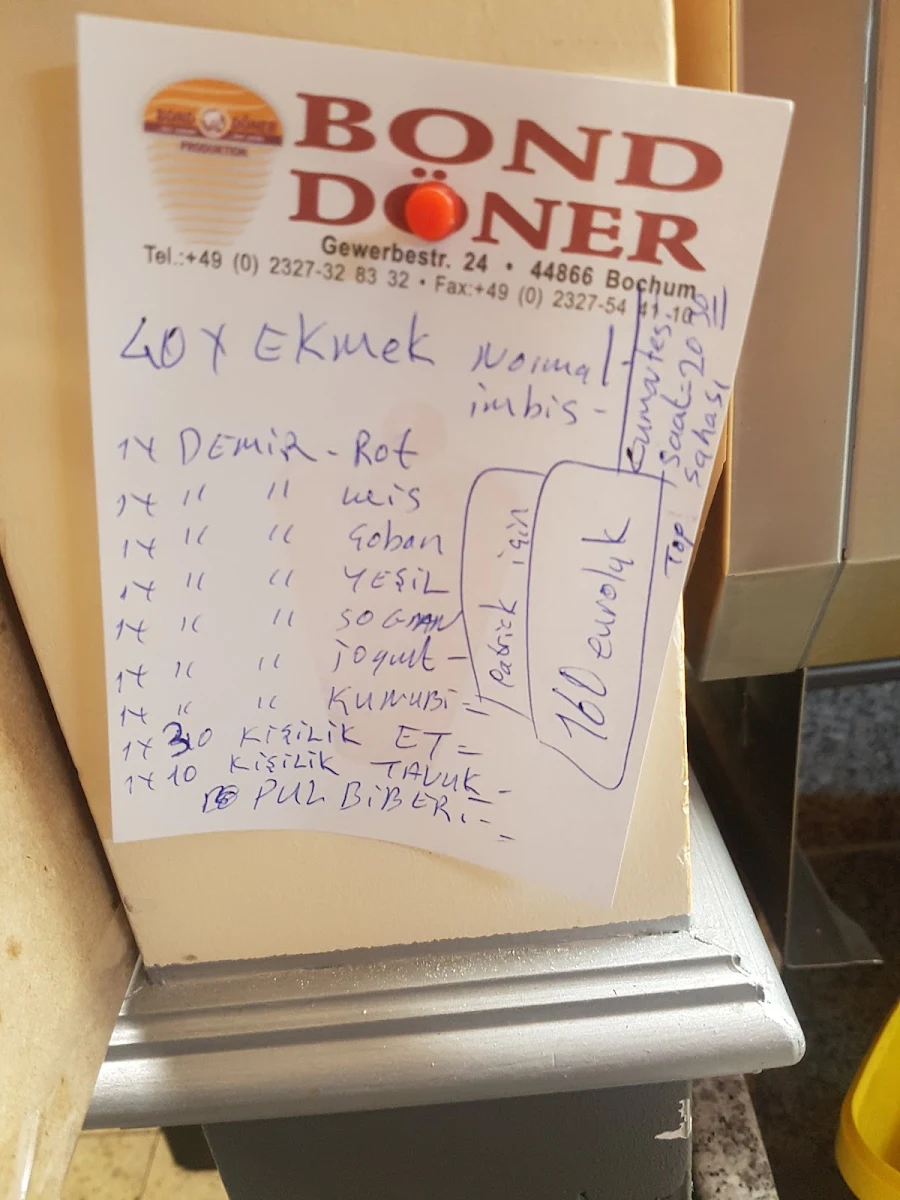 BOND DÖNER
PRODUKTION
BOND
DÖNER
Gewerbestr. 24 • 44866 Bochum
Tel.:+49 (0) 2327-32 83 32 • Fax:+49 (0) 2327-54 41 10
40 X EKmek Normal
imbis -
1x DEMiR - Rot
1x " " weis
1x " " Çoban
1x " " YEŞiL
1x " " SOGAN
1x " " jogurt -
1x " "
1x 30 KiŞiLiK ET =
1x 10 KiŞiLiK TAVUK -
PUL BiBERi -
Patrick için
160 euroluk
Cumartesi
saat = 20 30
Top sahası